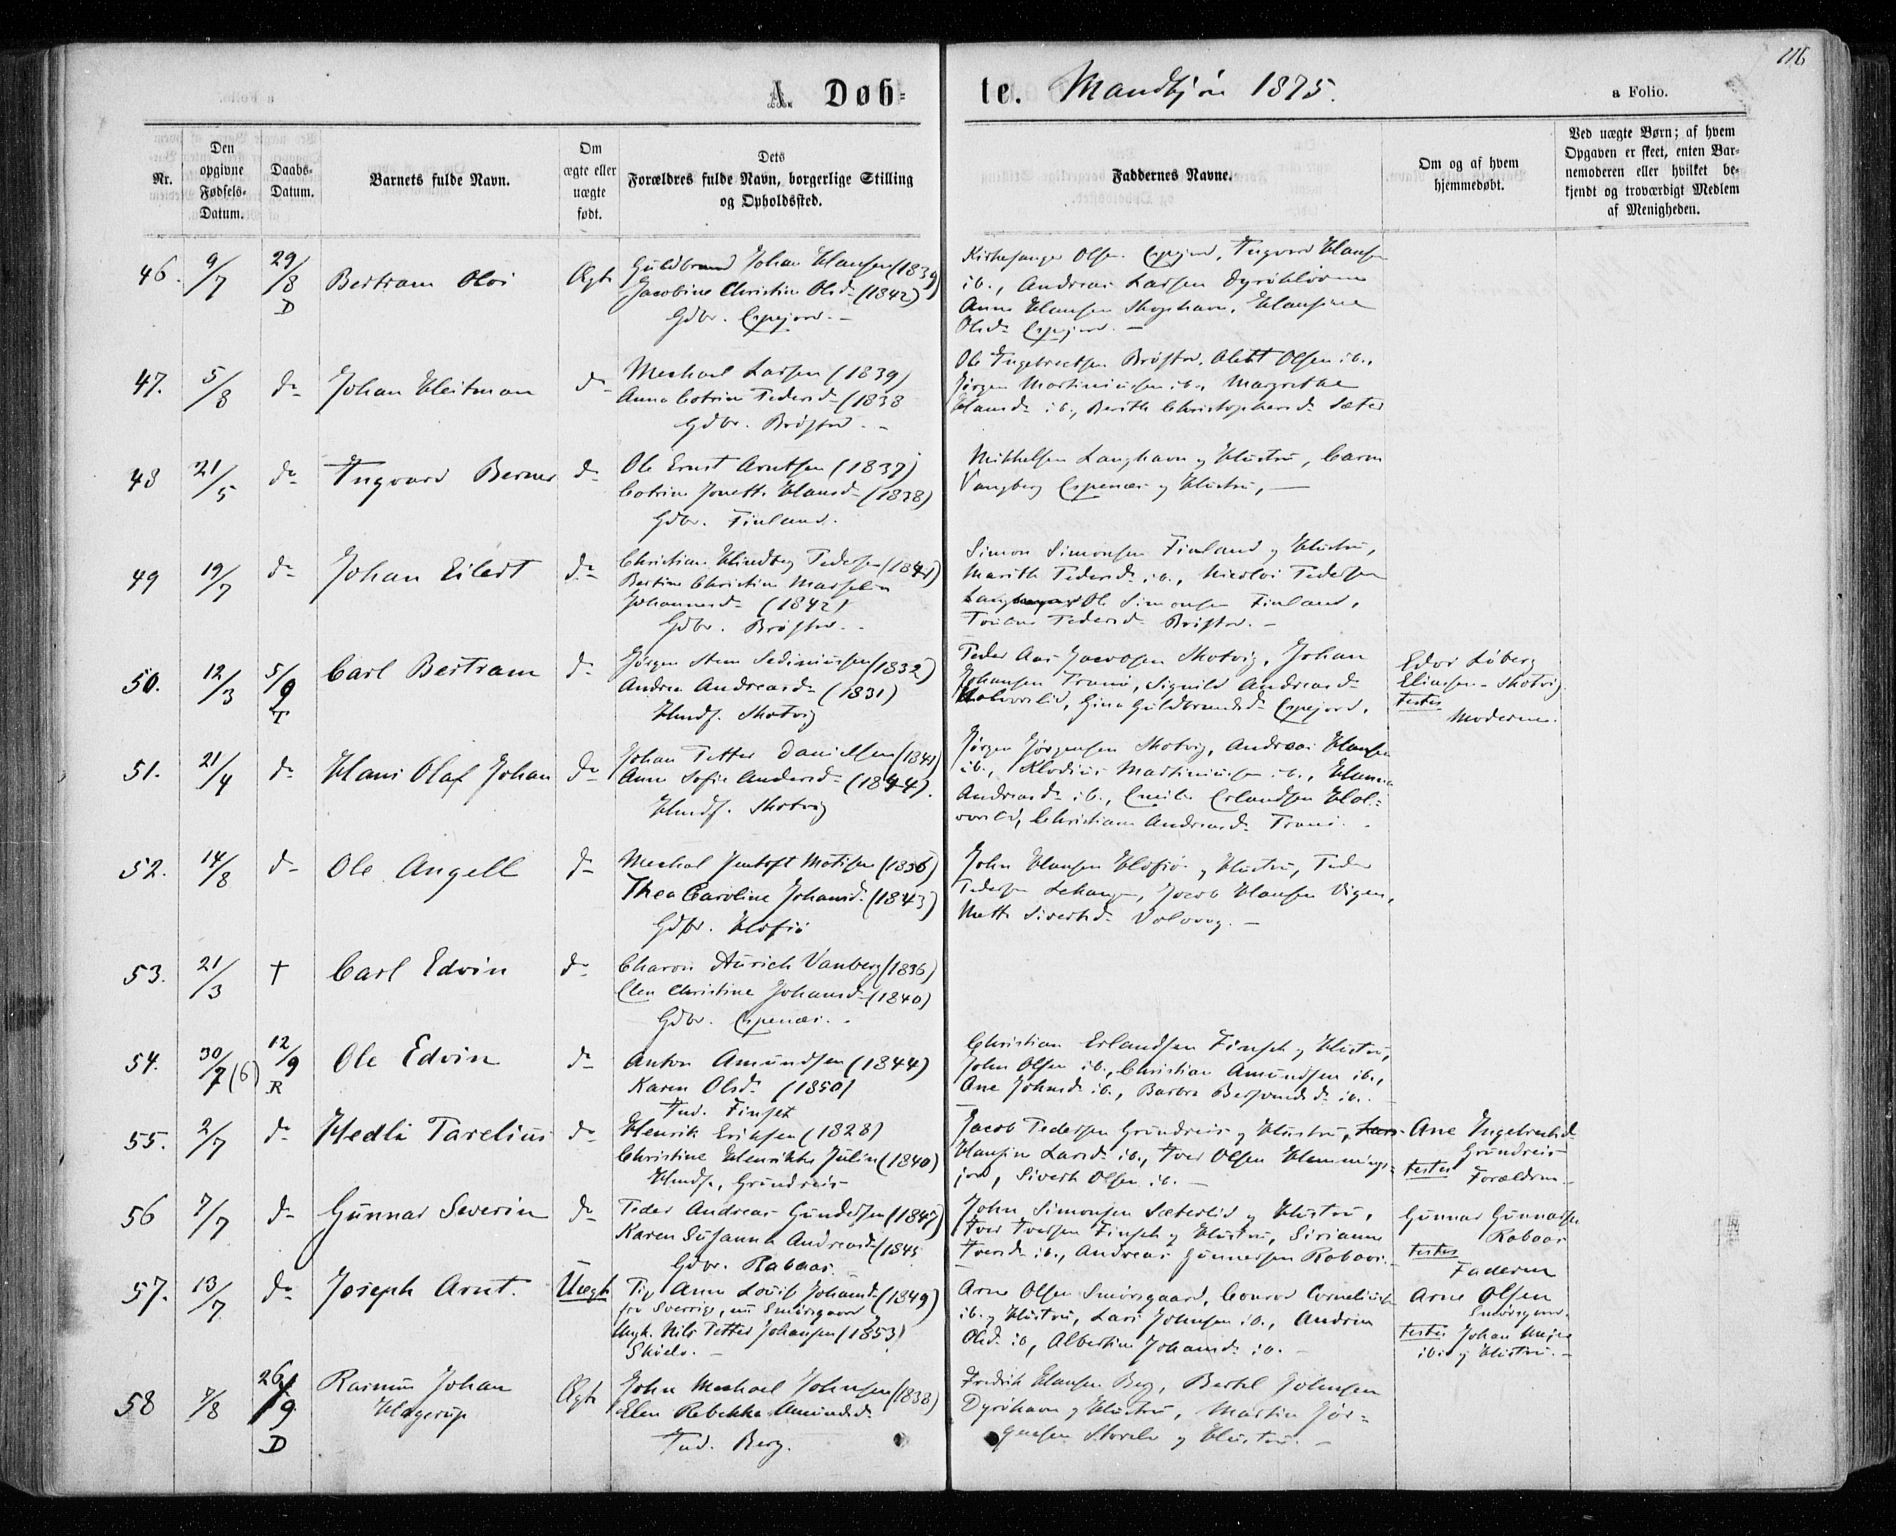 116
A. Døb-
te. Mandkjøn 1875.
a Folio.
Nr.
Den opgivne Fødsels-Datum.
Daabs-Datum.
Barnets fulde Navn.
Om ægte eller uægte født.
Dets Forældres fulde Navn, borgerlige Stilling og Opholdssted.
Faddernes Navne.
Om og af hvem hjemmedøbt.
Ved uægte Børn; af hvem Opgaven er skeet, enten Barnemoderen eller hvilket bekjendt og troværdigt Medlem af Menigheden.
46. 9/7 29/8 D Bertram Olai Ægte
Guldbrand Johan Hansen (1839)
Jacobine Christine Olsd. (1842)
Gdbr. Espejord. -
Kirkesanger Olsen Espejord, Ingvard Hansen
ib., Andreas Larsen Dyrøkloven
Anne Hansen Skogshavn, Hansine
Olsd. Espejord. -
47. 5/8 do Johan Heitman do
Mechael Larsen (1839)
Anna Cotrine Pedersd. (1838
Gdbr. Brøstad. -
Ole Ingebrectsen Brøstad, Olett Olsen ib.,
Jørgen Martiniussen ib., Margrethe
Hansd. ib., Berith Christophersd. Sæter
48 21/5 do Ingvard Berner do
Ole Ernst Arntsen (1837)
Cotrine Jonette Hansd. (1838)
Gdbr. Finland.
Mikkelsen Langhavn og Hustru, Caren
Vangberg Espenæs og Hustru, -
49 19/7 do Johan Eilert do
Christian Hindberg Pedersen (1841)
Bertine Christine Marselie
Johannesd. (1842)
Gdbr. Brøstad. -
Simon Simonsen Finland og Hustru,
Marith Pedersd. ib., Nicolai Pedersen
Ole Simonsen Finland,
Pedersd. Brøstad. -
50. 12/3 5/9 T Carl Bertram do
Jørgen Sten Sediniussen (1832)
Andrea Andreasd. (1831)
Hmdf. Skotvig
Peder Aas Jacobsen Skotvig, Johan
Johansen Tranø, Signild Andreasd.
Holvorlid, Gina Guldbrandsd. Espejord.
Edvr Løberg
Eliassen - Skotvig
testes
Moderen.
51. 21/4 do Hans Olaf Johan do
Johan Petter Danielsen (1841)
Anne Sofie Andersd. (1844).
Hmdf. Skotvig
Jørgen Jørgensen Skotvig, Andreas Hansen
ib., Klodius Martiniussen ib., Hanna
Andreasd. ib., Emilie Erlandsen Hol-
vorlid, Christiane Andreasd. Tranø. -
52. 14/8 do Ole Angell do
Mechal Jentoft Matisen (1836)
Thea Caroline Johansd. (1843)
Gdbr. Hofsø
John Hansen Hofsø og Hustru, Peder
Pedersen Lekanger, Jacob Hansen Vigen,
Mette Sivertsd. Valvaag. -
53. 21/3 † Carl Edvin do
Charon Aurich Vanberg (1836)
Elen Christine Johansd. (1840)
Gdbr. Espenæs. -
54. 30/7 (6) 12/9 R Ole Edvin do
Anton Amundsen (1844)
Karen Olsd. (1850)
Ind. Finset
Christian Erlandsen Finset og Hustru,
John Olsen ib., Christian Amundsen ib.,
Ane Johnsd. ib., Barbra Bersvendsd. ib. -
55. 2/7 do Hedli Parelius do
Henrik Eriksen (1828)
Christine Henrikke Julin (1840)
Hmdf., Grundreis
Jacob Pedersen Grundreis og Hustru, Lars
Hansine Larsd. ib., Iver Olsen Hemmings-
jord, Sivert Olsen ib. -
Ane Ingebrectsd.
Grundreis
testes Forældrene
56 7/7 do Gunnar Severin do
Peder Andreas Gundersen (1847)
Karen Susanna Andreasd. (1845
Gdbr. Rabaas.
John Simonsen Sæterlid og Hustru,
Iver Iversen Finset og Hustru, Sirianne
Iversd. ib., Andreas Gunnersen Rabaas. -
Gunnar Gunnarsen
Rabaas
testes
Faderen
57. 13/7 do Joseph Arnt. Uægte
Pige Anne Lovise Johansd. (1849)
fra Sverrig, nu Smørsgaard
Ungk. Nils Petter Johansen (1853)
Skøelv. -
Arne Olsen Smørsgaard, Conrad Corneliussen
ib. og Hustru, Lars Johnsen ib., Andrea
Olsd. ib, Albertine Johansd. ib. -
Arne Olsen
Smørsgaard
testes Johan
ib. og Hustru. -
58 7/8 26/9 D Rasmus Johan
Hagerup Ægte
John Mechael Johnsen (1838)
Elen Rebekka Amundsd.
Ind. Berg.
Fredrik Hansen Berg, Bertel Johnsen
Dyrøhavn og Hustru, Martin Jør-
gensen Storelv og Hustru. -